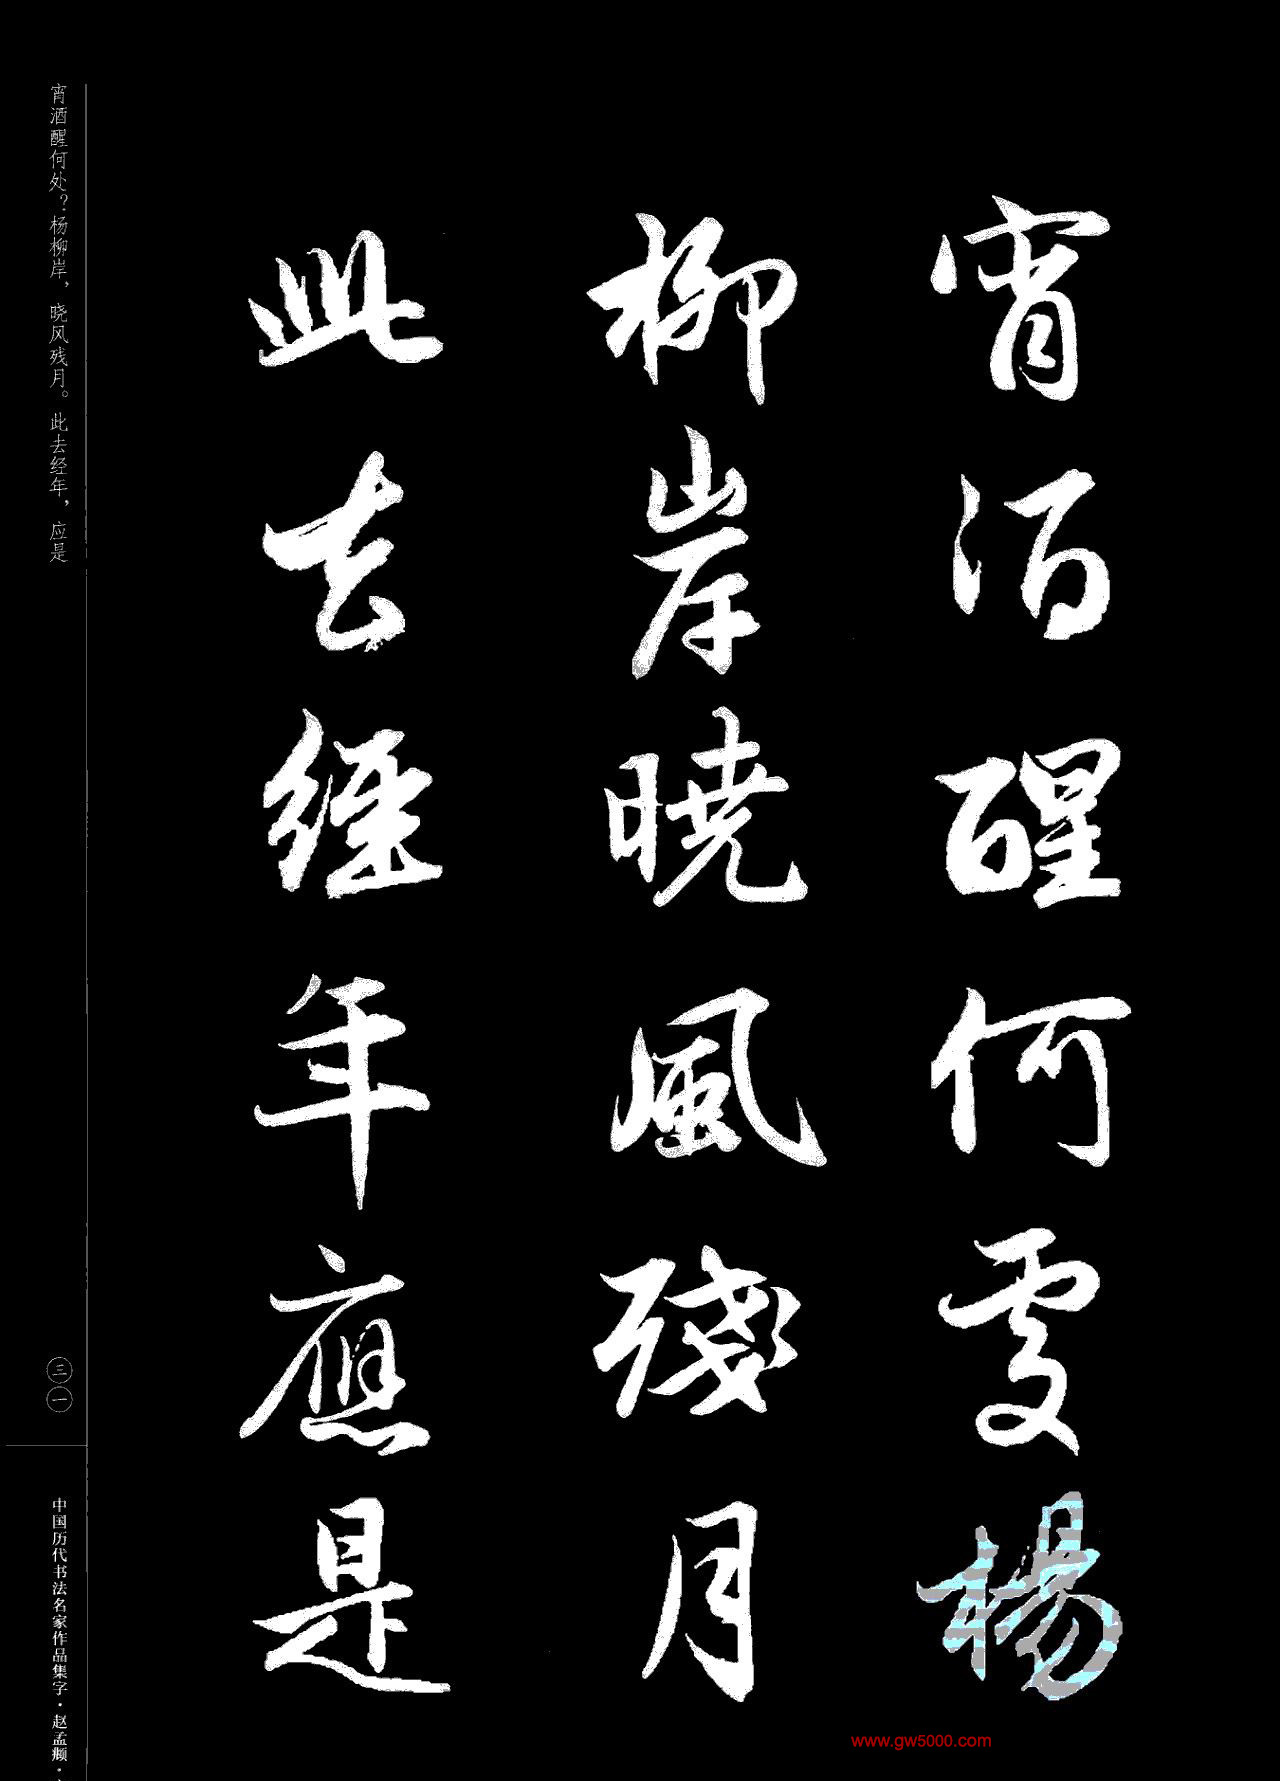 宵酒醒何處楊
柳岸曉風殘月
此去經年應是
宵酒醒何处？杨柳岸，晓风残月。此去经年，应是
三一
中国历代书法名家作品集字·赵孟頫·
www.gw5000.com